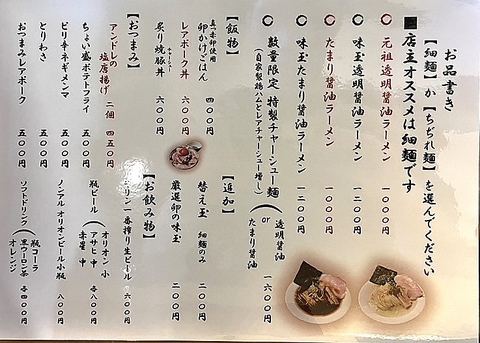 お品書き
【細麺】か【ちぢれ麺】を選んでください
■店主オススメは細麺です
元祖透明醤油ラーメン 一〇〇〇円
味玉透明醤油ラーメン 一二〇〇円
たまり醤油ラーメン 一〇〇〇円
味玉たまり醤油ラーメン 一二〇〇円
数量限定 特製チャーシュー麺 (透明醤油 or たまり醤油) 一六〇〇円
(自家製鶏ハムとレアチャーシュー増し)
【飯物】
卵かけごはん 四〇〇円
レアポーク丼 六〇〇円
炙り焼豚丼 六〇〇円
チャーシュー
【おつまみ】
アンドレの塩唐揚げ 二個 四五〇円
ちょい盛ポテトフライ 五〇〇円
ピリ辛ネギメンマ 五〇〇円
とりわさ 五〇〇円
おつまみレアポーク 五〇〇円
【追加】
替え玉 細麺のみ 二〇〇円
厳選卵の味玉 二〇〇円
【お飲み物】
キリン一番搾り生ビール 六〇〇円
瓶ビール (オリオン 小 アサヒ 中 赤星 中) 各八〇〇円
ノンアル オリオンビール小瓶 八〇〇円
ソフトドリンク (瓶コーラ 黒ウーロン茶 オレンジ) 各四〇〇円